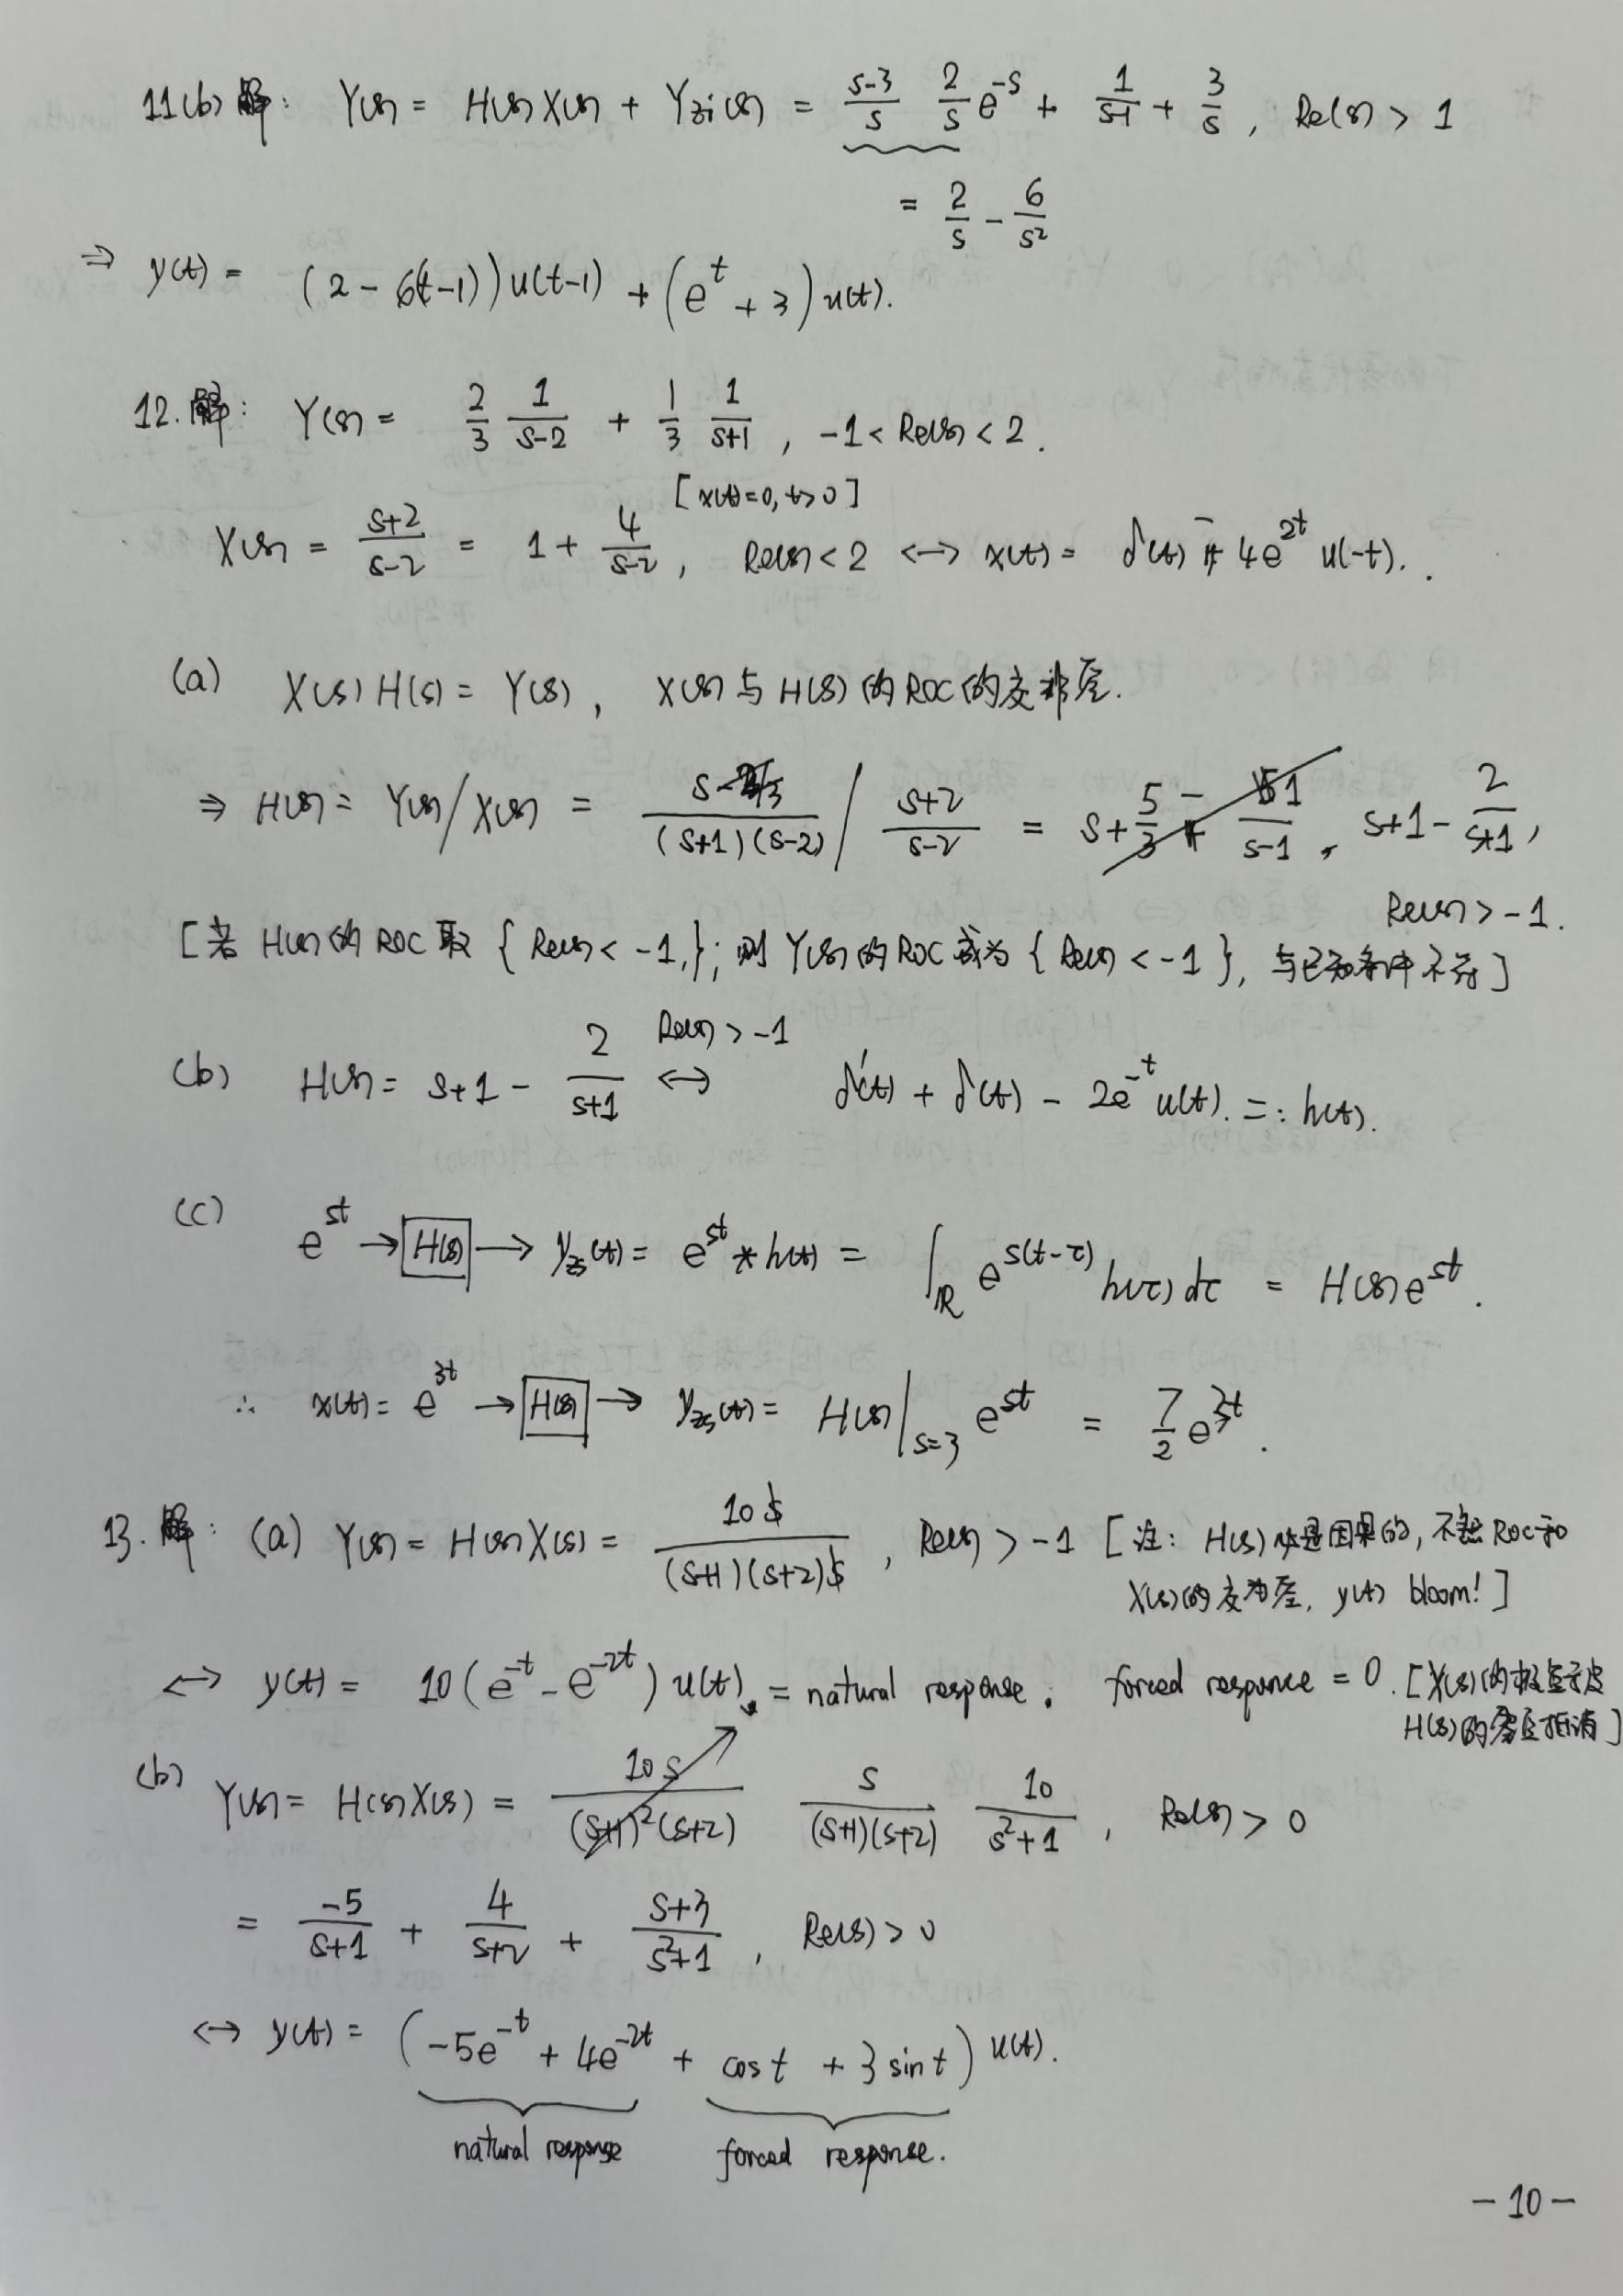 11(b) 解: Y(s) = H(s)X(s) + Yzi(s) = \frac{s-3}{s} \frac{2}{s} e^{-s} + \frac{1}{s-1} + \frac{3}{s}, Re(s) > 1
= \frac{2}{s} - \frac{6}{s^2}
⇒ y(t) = (2 - 6(t-1)) u(t-1) + (e^t + 3) u(t).
12. 解: Y(s) = \frac{2}{3} \frac{1}{s-2} + \frac{1}{3} \frac{1}{s+1}, -1 < Re(s) < 2.
[x(t)=0, t>0]
X(s) = \frac{s+2}{s-2} = 1 + \frac{4}{s-2}, Re(s) < 2 ↔ x(t) = δ(t) - 4e^{2t} u(-t).
(a) X(s) H(s) = Y(s), X(s) 与 H(s) 的 ROC 的交非空.
⇒ H(s) = Y(s)/X(s) = \frac{s}{(s+1)(s-2)} / \frac{s+2}{s-2} = s+1 - \frac{2}{s+1},
Re(s) > -1.
[若 H(s) 的 ROC 取 { Re(s) < -1, }; 则 Y(s) 的 ROC 成为 { Re(s) < -1 }, 与已知条件不符]
(b) H(s) = s+1 - \frac{2}{s+1} Re(s) > -1 ↔ δ'(t) + δ(t) - 2e^{-t} u(t). =: h(t).
(c) e^{st} → H(s) → y_{zs}(t) = e^{st} * h(t) = ∫_ℝ e^{s(t-τ)} h(τ) dτ = H(s) e^{st}.
∴ x(t) = e^{3t} → H(s) → y_{zs}(t) = H(s)|_{s=3} e^{st} = \frac{7}{2} e^{3t}.
13. 解: (a) Y(s) = H(s)X(s) = \frac{10 s}{(s+1)(s+2) s}, Re(s) > -1 [注: H(s) 必是因果的, 不然 ROC 和
X(s) 的交为空, y(t) bloom! ]
↔ y(t) = 10 (e^{-t} - e^{-2t}) u(t) = natural response. forced response = 0. [X(s) 的极点被
H(s) 的零点抵消]
(b) Y(s) = H(s)X(s) = \frac{10 s}{(s+1)^2 (s+2)} \frac{s}{(s+1)(s+2)} \frac{10}{s^2+1}, Re(s) > 0
= \frac{-5}{s+1} + \frac{4}{s+2} + \frac{s+3}{s^2+1}, Re(s) > 0
↔ y(t) = (-5e^{-t} + 4e^{-2t} + cos t + 3 sin t) u(t).
natural response forced response.
- 10 -